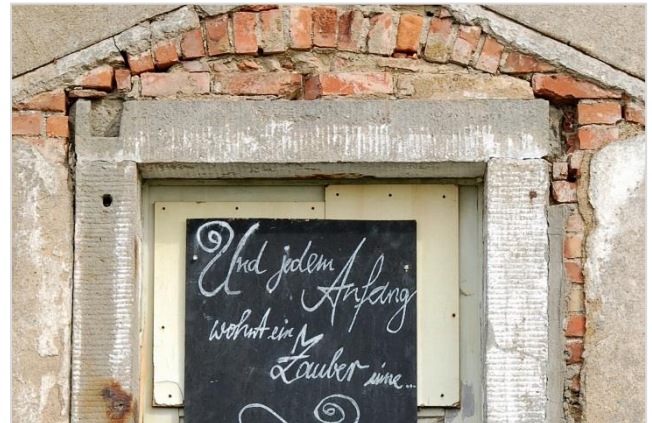 Und jedem
Anfang
wohnt ein
Zauber inne...